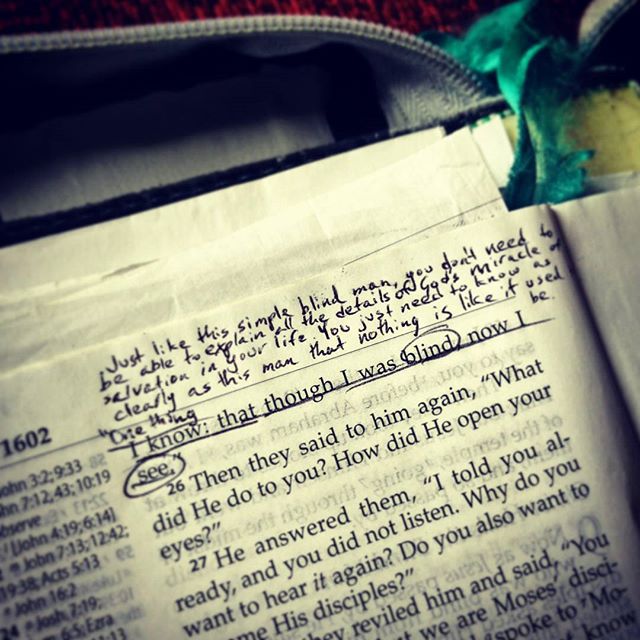 Just like this simple blind man, you don't need to
be able to explain all the details of God's miracle of
salvation in your life. You just need to know as
clearly as this man that nothing is like it used
be.
"One thing
I know: that though I was blind, now I
see."
26 Then they said to him again, "What
did He do to you? How did He open your
eyes?"
27 He answered them, "I told you al-
ready, and you did not listen. Why do you
want to hear it again? Do you also want to
me His disciples?"
they reviled him and said, "You
we are Moses' disci-
spoke to "Mo-
know
1602
John 3:2; 9:33
John 7:12, 43; 10:19
bserve
[John 4:19; 6:14]
John 7:13; 12:42;
19:38; Acts 5:13
John 16:2
Josh 7:19;
6:5; Ezra